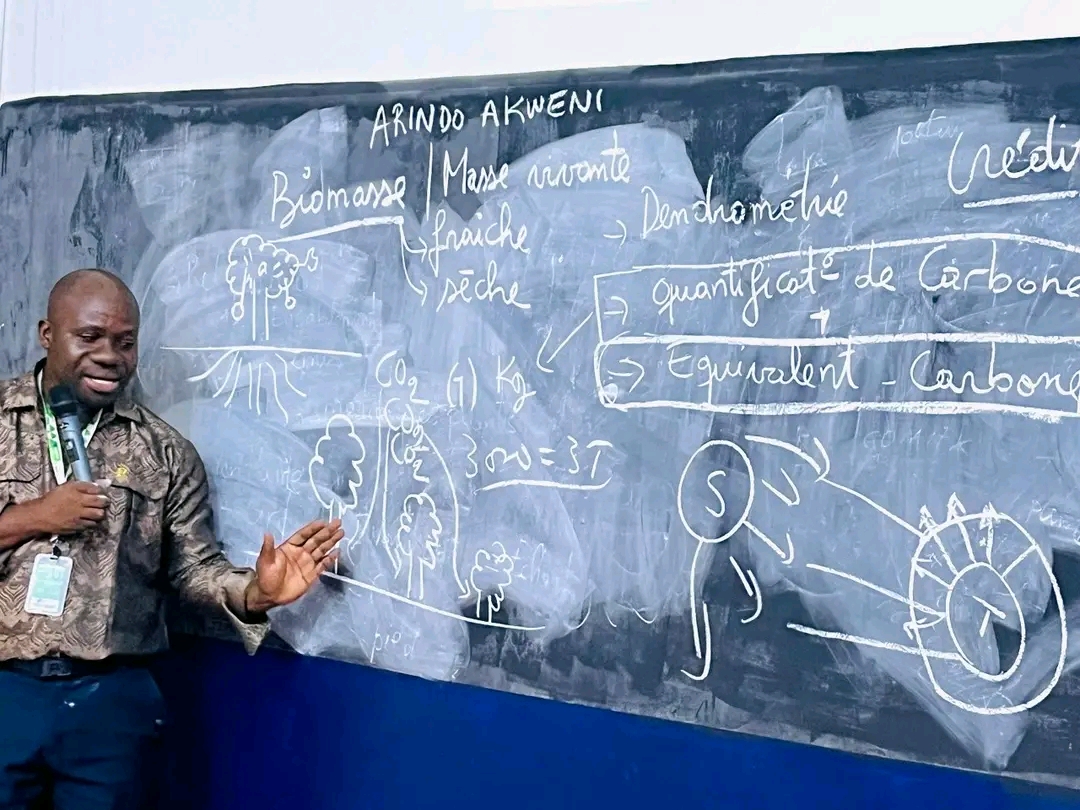 ARINDO AKWENI
Biomasse | Masse vivante
→ fraîche
→ sèche
→ Dendrométrie
Crédi
→ quantificatº de Carbone
→ Equivalent - Carbone
CO2 (1) Kg
CO2
CO2
S
T